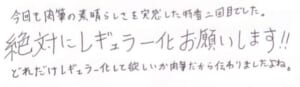 今回も肉筆の素晴らしさを実感した特番二回目でした。
絶対にレギュラー化お願いします!!
どれだけレギュラー化して欲しいか肉筆だから伝わりましたよね。